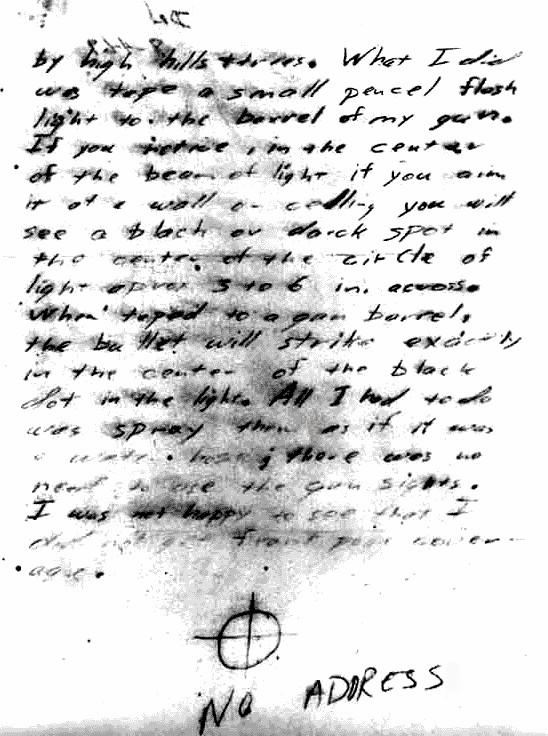 by high hills + trees. What I did
was tape a small pencel flash
light to the barrel of my gun.
If you notice, in the center
of the beam of light if you aim
it at a wall or celling you will
see a black or darck spot in
the center of the circle of
light aprox 3 to 6 in. across.
When taped to a gun barrel,
the bullet will strike exactly
in the center of the black
dot in the light. All I had to do
was spray them as if it was
a water hose; there was no
need to use the gun sights.
I was not happy to see that I
did not get front page cover-
age.
NO ADDRESS